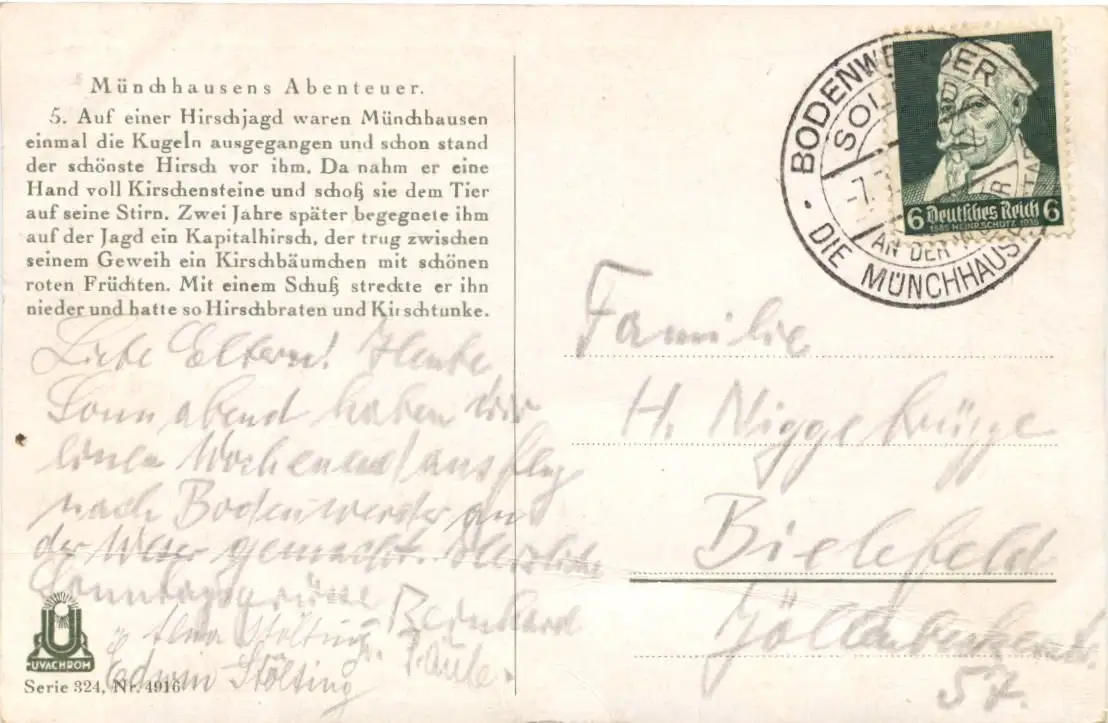 Münchhausens Abenteuer.
5. Auf einer Hirschjagd waren Münchhausen
einmal die Kugeln ausgegangen und schon stand
der schönste Hirsch vor ihm. Da nahm er eine
Hand voll Kirschensteine und schoß sie dem Tier
auf seine Stirn. Zwei Jahre später begegnete ihm
auf der Jagd ein Kapitalhirsch, der trug zwischen
seinem Geweih ein Kirschbäumchen mit schönen
roten Früchten. Mit einem Schuß streckte er ihn
nieder und hatte so Hirschbraten und Kirschtunke.
Liebe Eltern! Heute
Sonnabend haben wir
einen Wochenendausflug
nach Bodenwerder an
der Weser gemacht. Herzliche
Sonntagsgrüsse Bernhard
Stölting
Edwin Stölting
UVACHROM
Serie 324, Nr. 4916
BODENWERDER
DIE MÜNCHHAUS
AN DER
6 Deutsches Reich 6
1585 HEINR. SCHÜTZ 1935
Familie
H. Niggebrügge
Bielefeld
57.